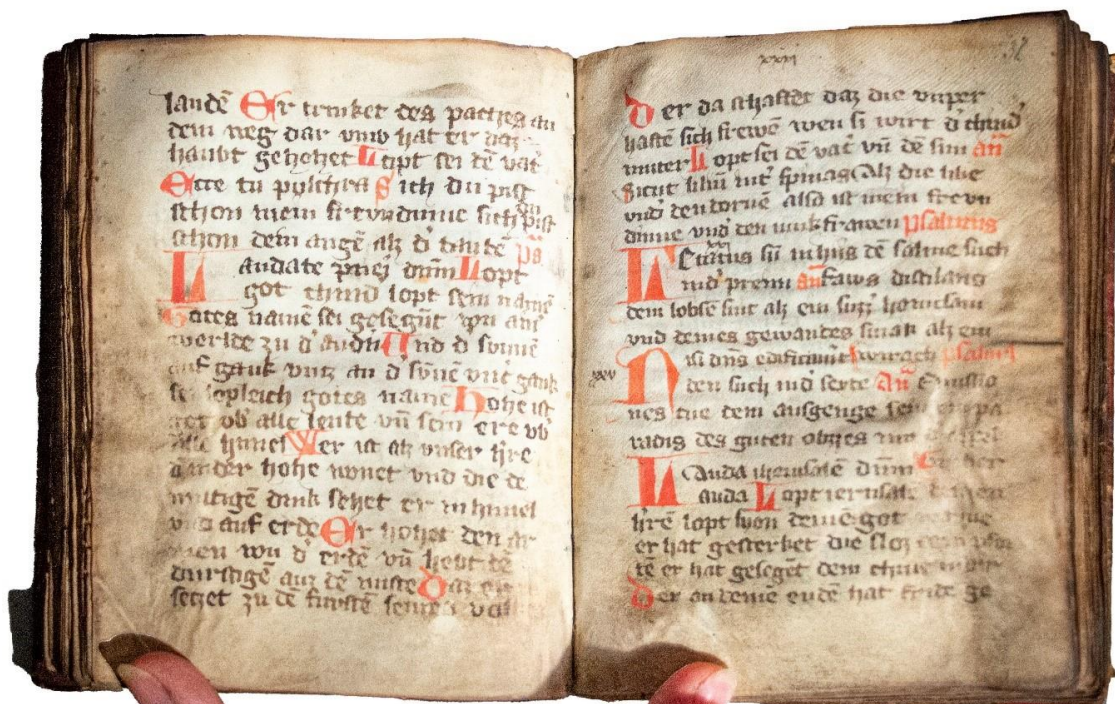 landē Er trinket des paches an
dem weg dar vmb hat er daz
haubt gehohet Lopt sei dē vat͛
Ecce tu pulchra Sich du pist
schon mein frevndinne sich pist
schon dein augē alz d͛ taubē ps̄
Laudate pueri dn̄m Lopt
got chind lopt sein namē
Gotes namē sei gesegent von
werlde zu Und d͛ sunnē
auf gank vntz an d͛ sunē vnt gank
sei lopleich gotes name Hohe ist
got ob alle leute vn̄ sein ere vb͛
alle himel Wer ist alz vnser h͛re
d͛ in der hohe wonet vnd die de
mutigē dink sehet er in himel
vnd auf erde Er hohet den ar
men von d͛ erdē vn̄ hebt dē
durftigē auz dē miste Daz er
setzet zu dē furstē seines vol
xxxij 32
Der da schaffet daz die vnper
haftē sich frewē wen si wirt d͛ chind͛
muter Lopt sei dē vat͛ vn̄ dē sun an̄
Sicut liliū int͛ spinas Alz die lilie
vnd͛ den dornē also ist mein frevn
dinne vnd͛ den iunkfrawen psalmus
Letatus sū in hijs dē salme such
ind͛ preim an̄ Fauus distilans
dein lobse sint alz ein suzz͛ honicsam
vnd deines gewandes smak alz ein
xxv Nisi dns edificauit wirach psalmus
den such ind͛ sexte An̄ Emissio
nes tue dein ausgenge sein ein pa
radis des guten obzzes
Lauda iherusalē dn̄m
auda Lopt ierusalē
h͛rē lopt syon deinē got
er hat gesterket die sloz dein
tē er hat gesegēt dein
Der an deinē endē hat fride ge